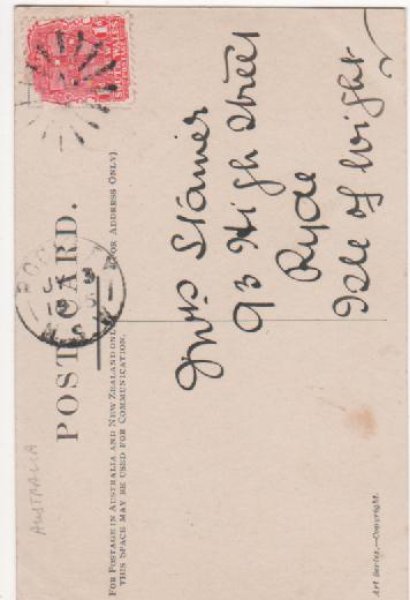 POST CARD.
FOR POSTAGE IN AUSTRALIA AND NEW ZEALAND ONLY
THIS SPACE MAY BE USED FOR COMMUNICATION.
(FOR ADDRESS ONLY)
SOUTH WALES
N.S.W
Mrs Stainer
93 High Street
Ryde
Isle of Wight
AUSTRALIA
Art Series.—Copyright.